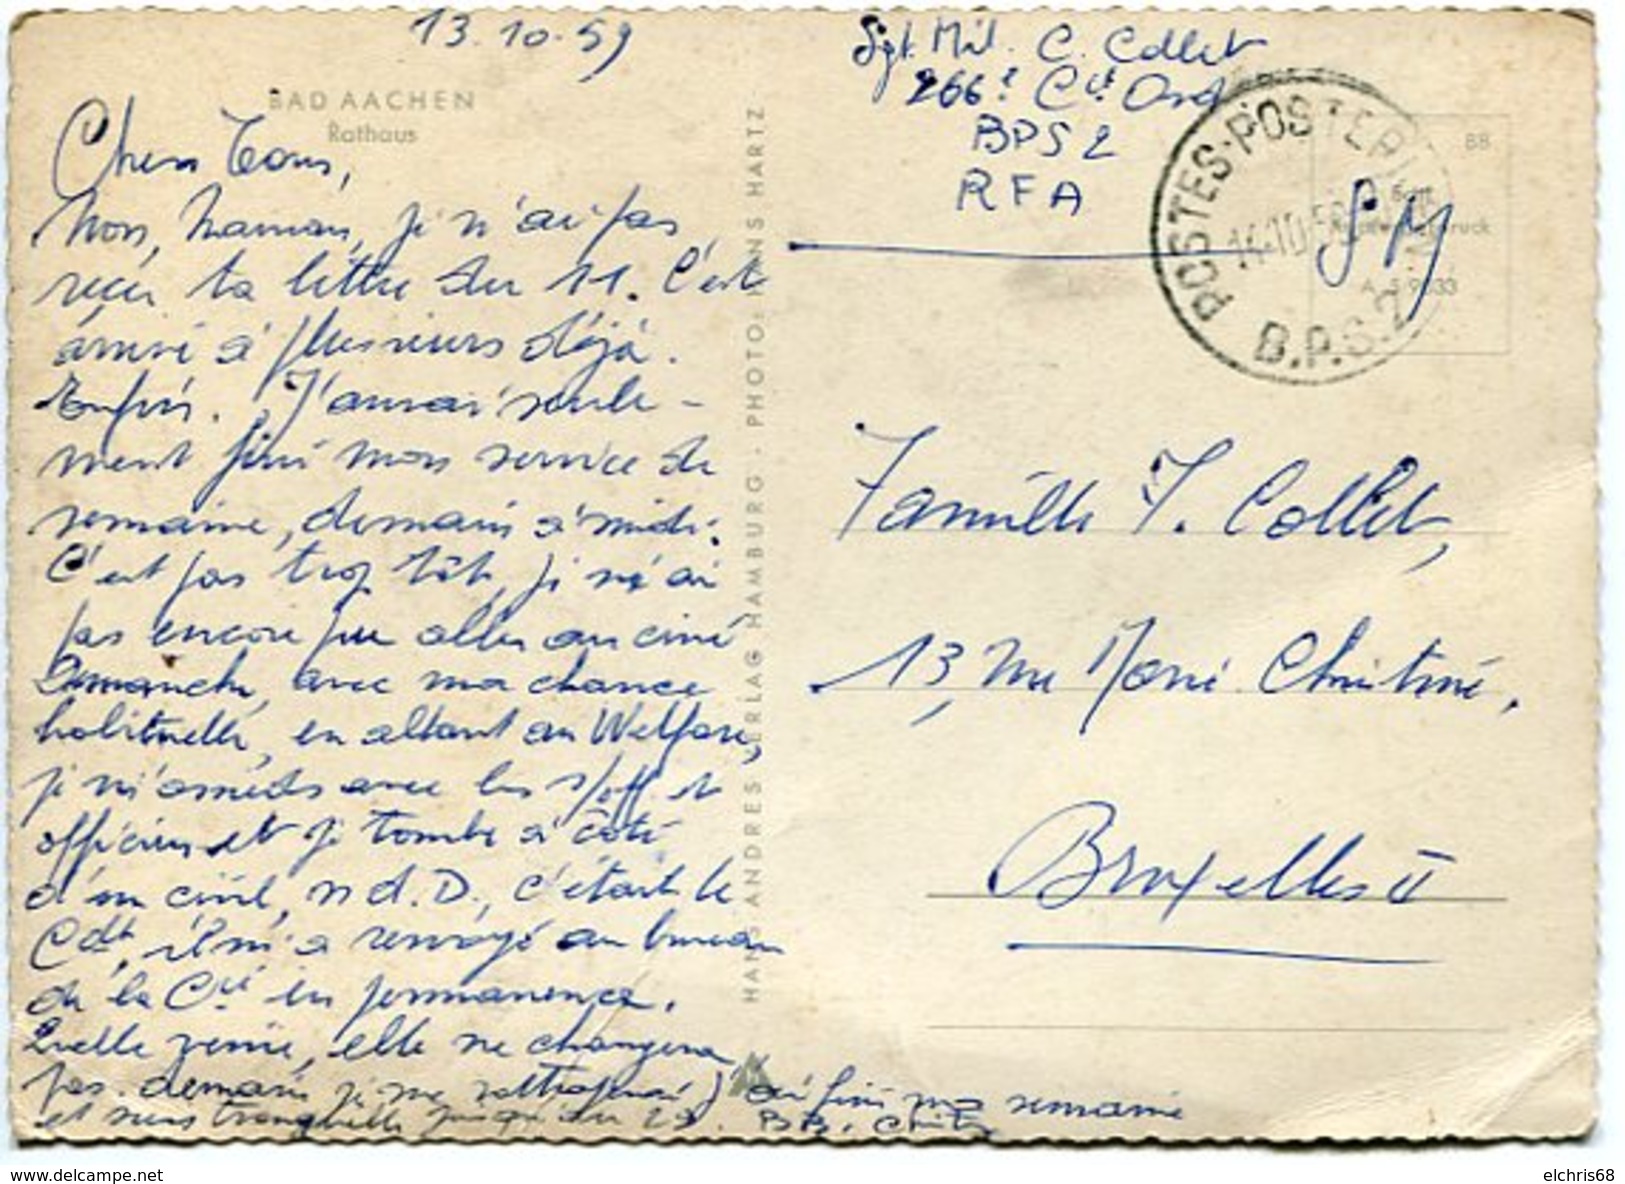 13.10.59
BAD AACHEN
Rathaus
Chers Tous,
Non, Maman, je n'ai pas
reçu ta lettre du 11. C'est
arrivé à plusieurs déjà.
Enfin. J'aurai seule-
ment fini mon service de
semaine, demain à midi.
C'est pas trop tôt, je n'ai
pas encore pu aller au ciné
Dimanche, avec ma chance
habituelle, en allant au Welfare,
je m'arrête avec les s/off et
officiers et je tombe à côté
d'un civil, n.d.D., c'était le
Cdt, il m'a renvoyé au bureau
de la Cie en permanence.
Quelle veine, elle ne changera
pas. demain je me rattraperai, j'ai fini ma semaine
et suis tranquille jusqu'au 29. BB.
HANS ANDRES VERLAG HAMBURG · PHOTO: HANS HARTZ
Sgt. Mil. C. Collet
266e Cie Ord
BPS 2
RFA
SM
POSTES-POSTERIJEN
14.10.59
B.P.S.2
88
Echt
A. S 9033
Famille J. Collet,
13, rue Marie Christine,
Bruxelles II
elchris68